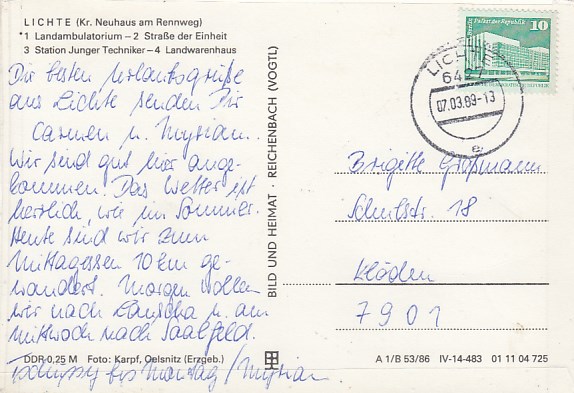 LICHTE (Kr. Neuhaus am Rennweg)
*1 Landambulatorium – 2 Straße der Einheit
3 Station Junger Techniker – 4 Landwarenhaus
Die besten Urlaubsgrüße
aus Lichte senden Dir
Carmen u. Myriam.
Wir sind gut hier ange-
kommen. Das Wetter ist
herrlich, wie im Sommer.
Heute sind wir zum
Mittagessen 10 km ge-
wandert. Morgen wollen
wir nach Lauscha u. am
Mittwoch nach Saalfeld.
Tschüssy bis Montag / Myriam
DDR 0,25 M Foto: Karpf, Oelsnitz (Erzgeb.)
BILD UND HEIMAT · REICHENBACH (VOGTL)
Palast der Republik 10
LICHTE
6427
07.03.89-13
e
Brigitte Großmann
Schulstr. 18
Klöden
7901
A 1/B 53/86 IV-14-483 01 11 04 725